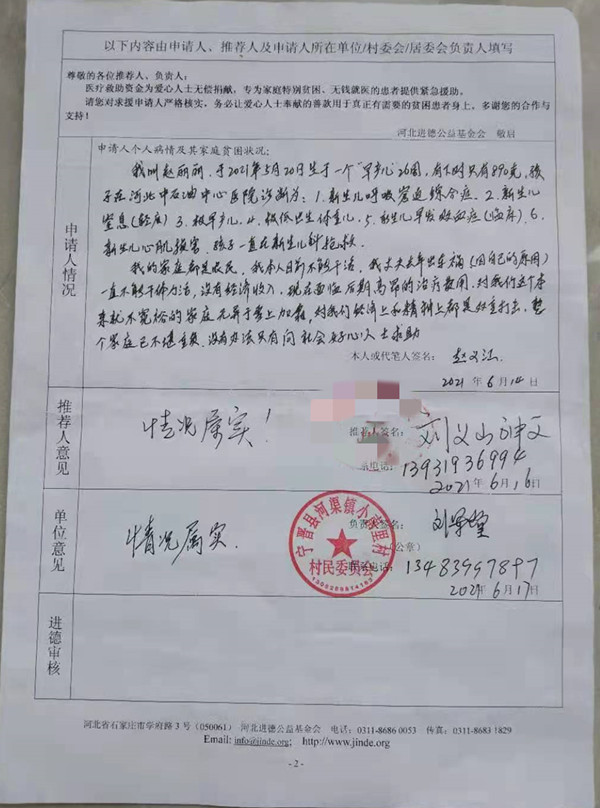 以下内容由申请人、推荐人及申请人所在单位/村委会/居委会负责人填写
尊敬的各位推荐人、负责人：
医疗救助资金为爱心人士无偿捐献，专为家庭特别贫困、无钱就医的患者提供紧急援助。
请您对求援申请人严格核实，务必让爱心人士奉献的善款用于真正有需要的贫困患者身上，多谢您的合作与
支持！
河北进德公益基金会 敬启
申请人情况
申请人个人病情及其家庭贫困状况：
我叫赵丽丽，于2021年5月20日生于一个"早产儿"26周，有1时只有890克，孩
子在河北中石油中心医院诊断为：1.新生儿呼吸窘迫综合症、2.新生儿
窒息(轻度) 3.极早产儿、4.极低出生体重儿、5.新生儿早发败血症(临床)、6.
新生儿心肌损害、孩子一直在新生儿科抢救。
我的家庭都是农民，我本人目前不能干活，我丈夫去年出车祸(因自己的原因)
一直不能干体力活，没有经济收入，现在面临后期高昂的治疗费用，对我们这个本
来就不宽裕的家庭无异于雪上加霜，对我们经济上和精神上都是双重打击，整
个家庭已不堪重负，没有办法只有向社会好心人士求助
本人或代笔人签名：
2021年6月14日
推荐人意见
情况属实！
推荐人签名：
电话：13931936994
2021年6月16日
单位意见
情况属实.
负责人签名：
(公章)
宁晋县河渠镇小 里村
村民委员会
电话：13483997897
2021年6月17日
进德审核
河北省石家庄市学府路3号（050061） 河北进德公益基金会 电话：0311-8686 0053 传真：0311-8683 1829
Email: info@jinde.org; http://www.jinde.org
- 2 -